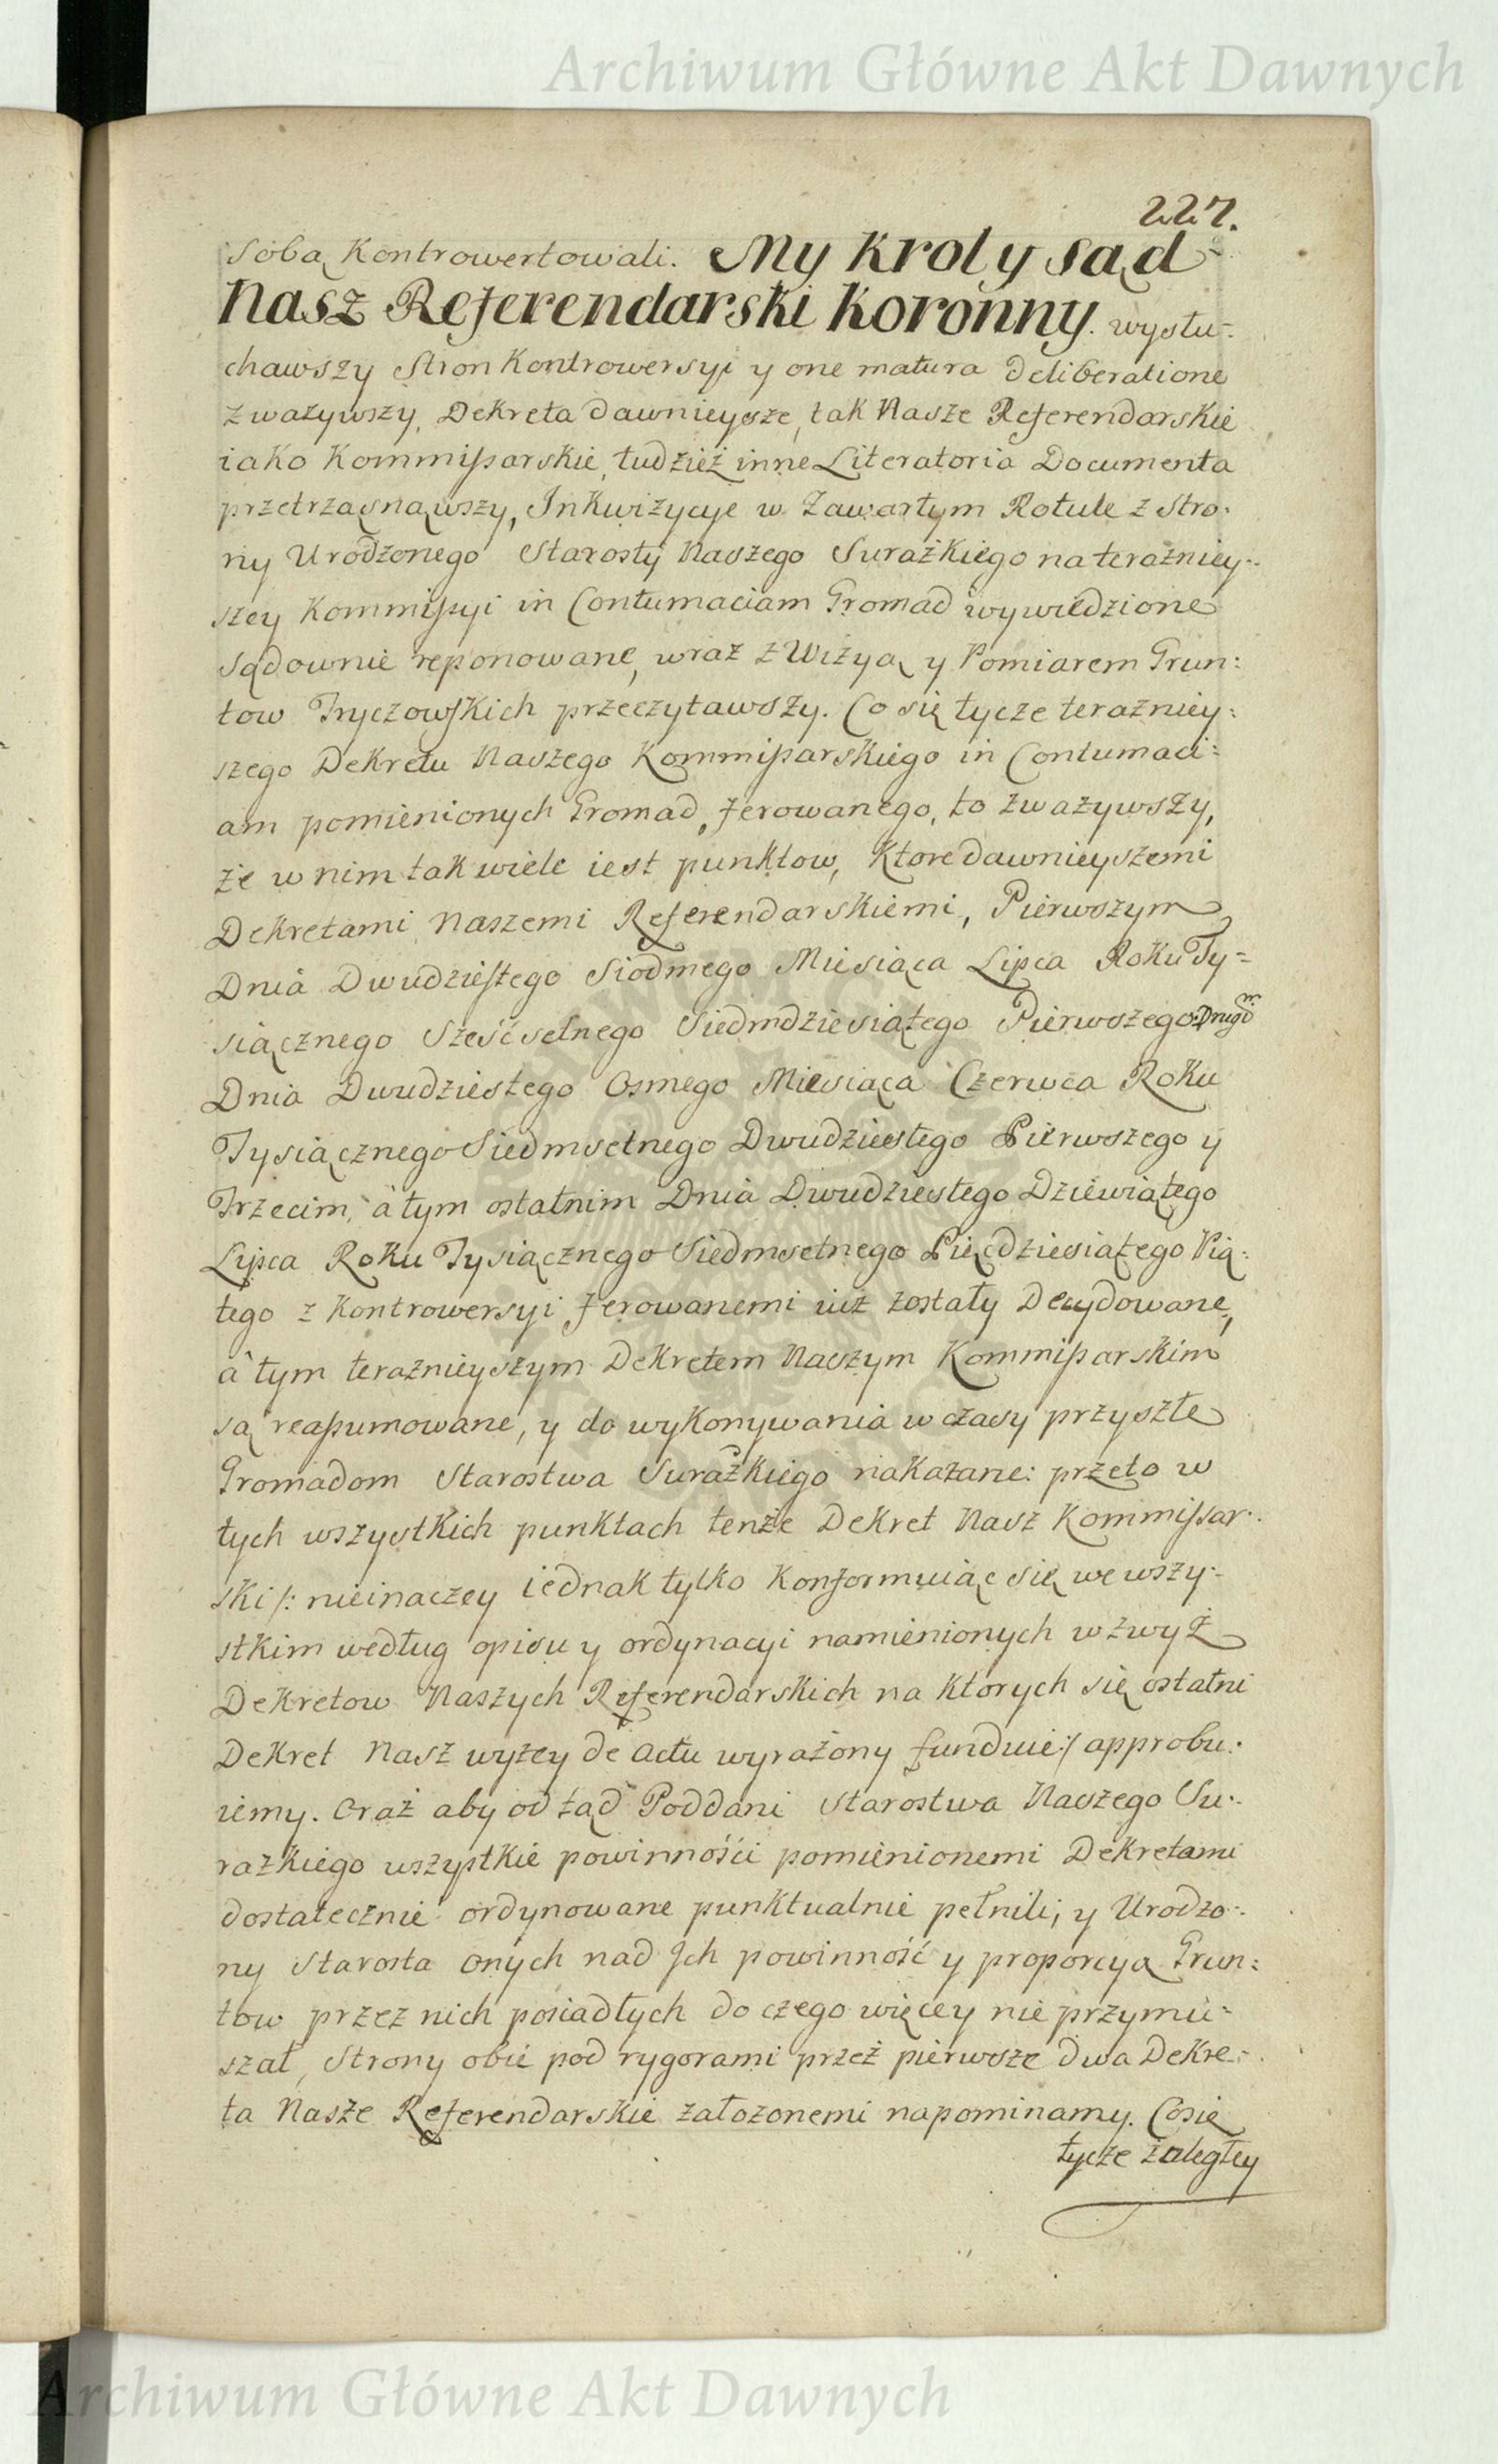 Archiwum Główne Akt Dawnych
227.
Sobą Kontrowertowali. My Krol y Sąd
Nasz Referendarski Koronny. wysłu-
chawszy Stron Kontrowersyi y one matura deliberatione
zważywszy, Dekreta dawnieysze, tak Nasze Referendarskie
iako Kommißarskie, tudzież inne Literatoria Documenta
przetrząsnąwszy, Inkwizycye w Zawartym Rotule z Stro-
ny Urodzonego Starosty Naszego Surazkiego na teraźniey-
szey Kommißyi in Contumaciam Gromad wywiedzione
Sądownie reponowane, wraz z Wizyą y Pomiarem Grun:
tow Tryczowskich przeczytawszy. Co się tycze teraźniey:
szego Dekretu Naszego Kommißarskiego in Contumaci:
am pomienionych Gromad, ferowanego, to zważywszy,
że w nim tak wiele iest punktow, Ktore dawnieyszemi
Dekretami Naszemi Referendarskiemi, Pierwszym
Dnia Dwudziestego Siodmego Miesiąca Lipca Roku Ty-
siącznego Sześćsetnego Siedmdziesiątego Pierwszego Drugim
Dnia Dwudziestego Osmego Miesiąca Czerwca Roku
Tysiącznego Siedmsetnego Dwudziestego Pierwszego y
Trzecim, a tym ostatnim Dnia Dwudziestego Dziewiątego
Lipca Roku Tysiącznego Siedmsetnego Pięcdziesiątego Pią:
tego z Kontrowersyi ferowanemi iuż zostały Decydowane,
a tym teraznieyszym Dekretem Naszym Kommißarskim
są reaßumowane, y do wykonywania w czasy przyszłe
Gromadom Starostwa Surazkiego nakazane: przeto w
tych wszystkich punktach tenże Dekret Nasz Kommissar-
ski /: nieinaczey iednak tylko Konformuiąc się we wszy-
stkim według opisu y ordynacyi namienionych wzwyż
Dekretow Naszych Referendarskich na ktorych się ostatni
Dekret Nasz wyżey de actu wyrażony funduie :/ approbu:
iemy. Oraz aby od tąd Poddani Starostwa Naszego Su-
razkiego wszystkie powinności pomienionemi Dekretami
dostatecznie ordynowane punktualnie pełnili, y Urodzo-
ny Starosta onych nad Ich powinność y proporcyą Grun:
tow przez nich posiadłych do czego więcey nie przymu-
szał, Strony obie pod rygorami przez pierwsze dwa Dekre-
ta Nasze Referendarskie załozonemi napominamy. Co się
tycze zaległey
Archiwum Główne Akt Dawnych